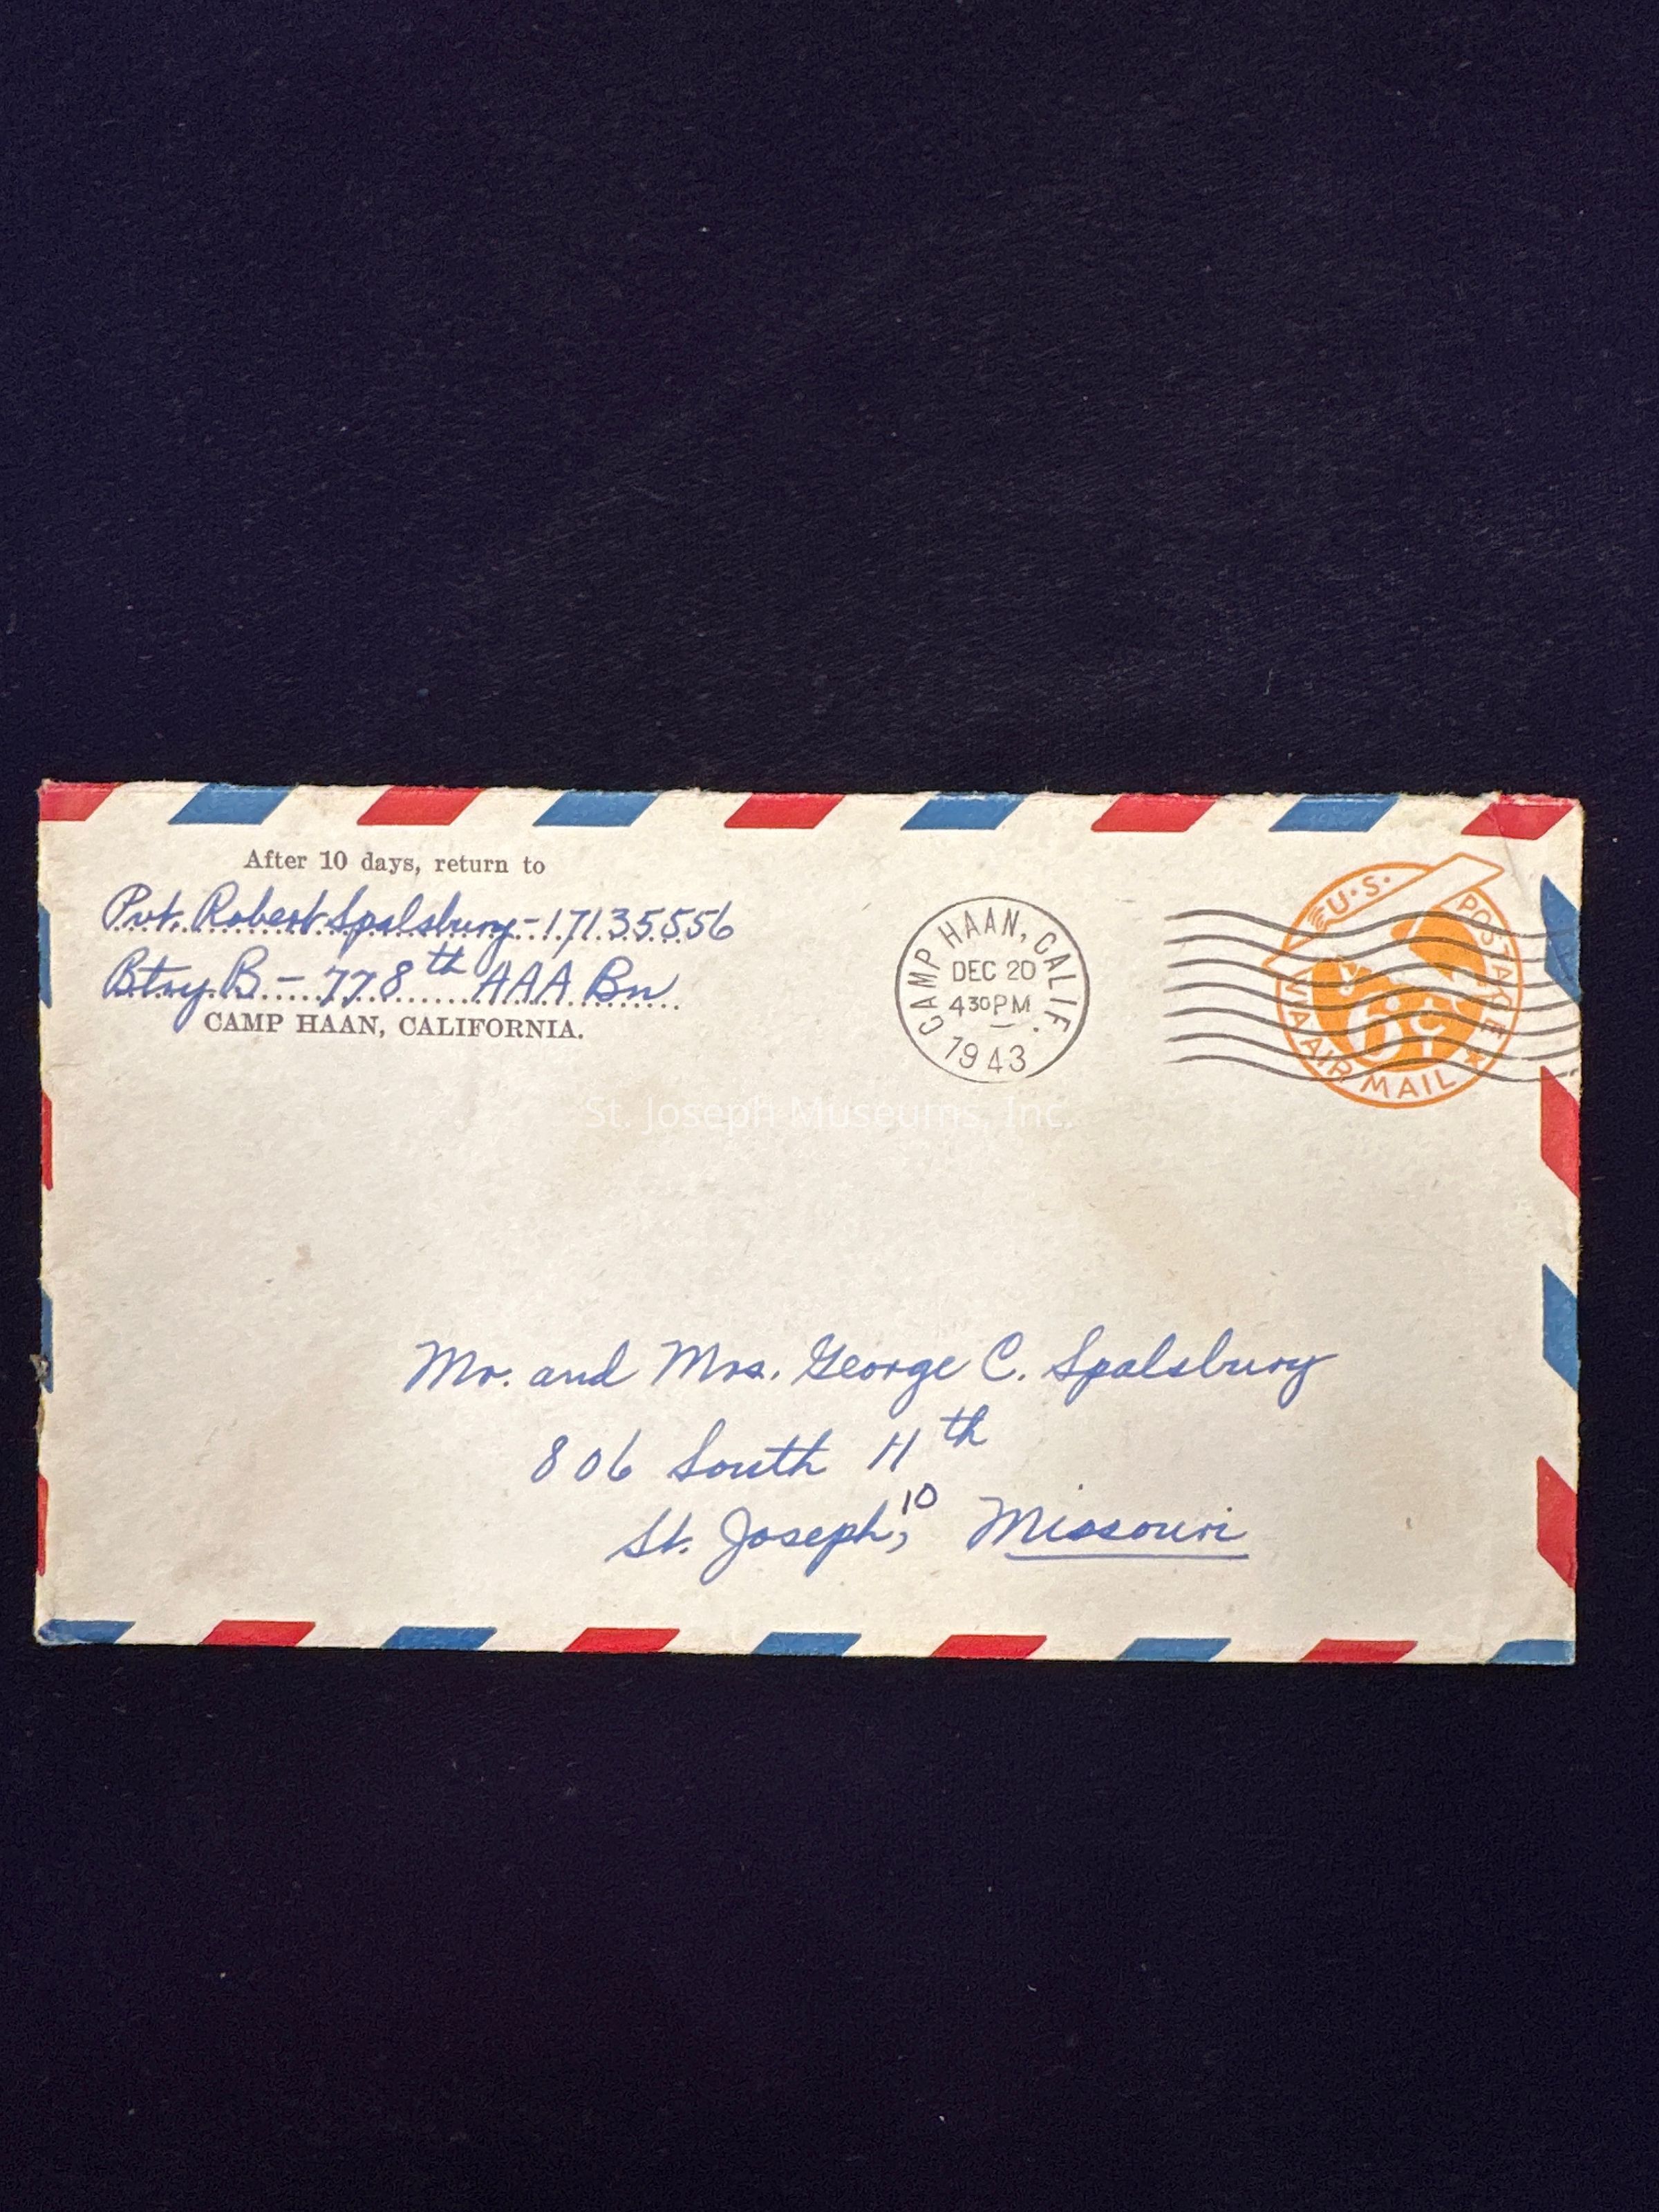 After 10 days, return to
Pvt. Robert Spalsbury - 17135556
Btry B - 778th AAA Bn
CAMP HAAN, CALIFORNIA.
CAMP HAAN, CALIF.
DEC 20
430PM
1943
U.S. POSTAGE
6c
VIA AIR MAIL
St. Joseph Museums, Inc.
Mr. and Mrs. George C. Spalsbury
806 South 11th
St. Joseph, 10 Missouri